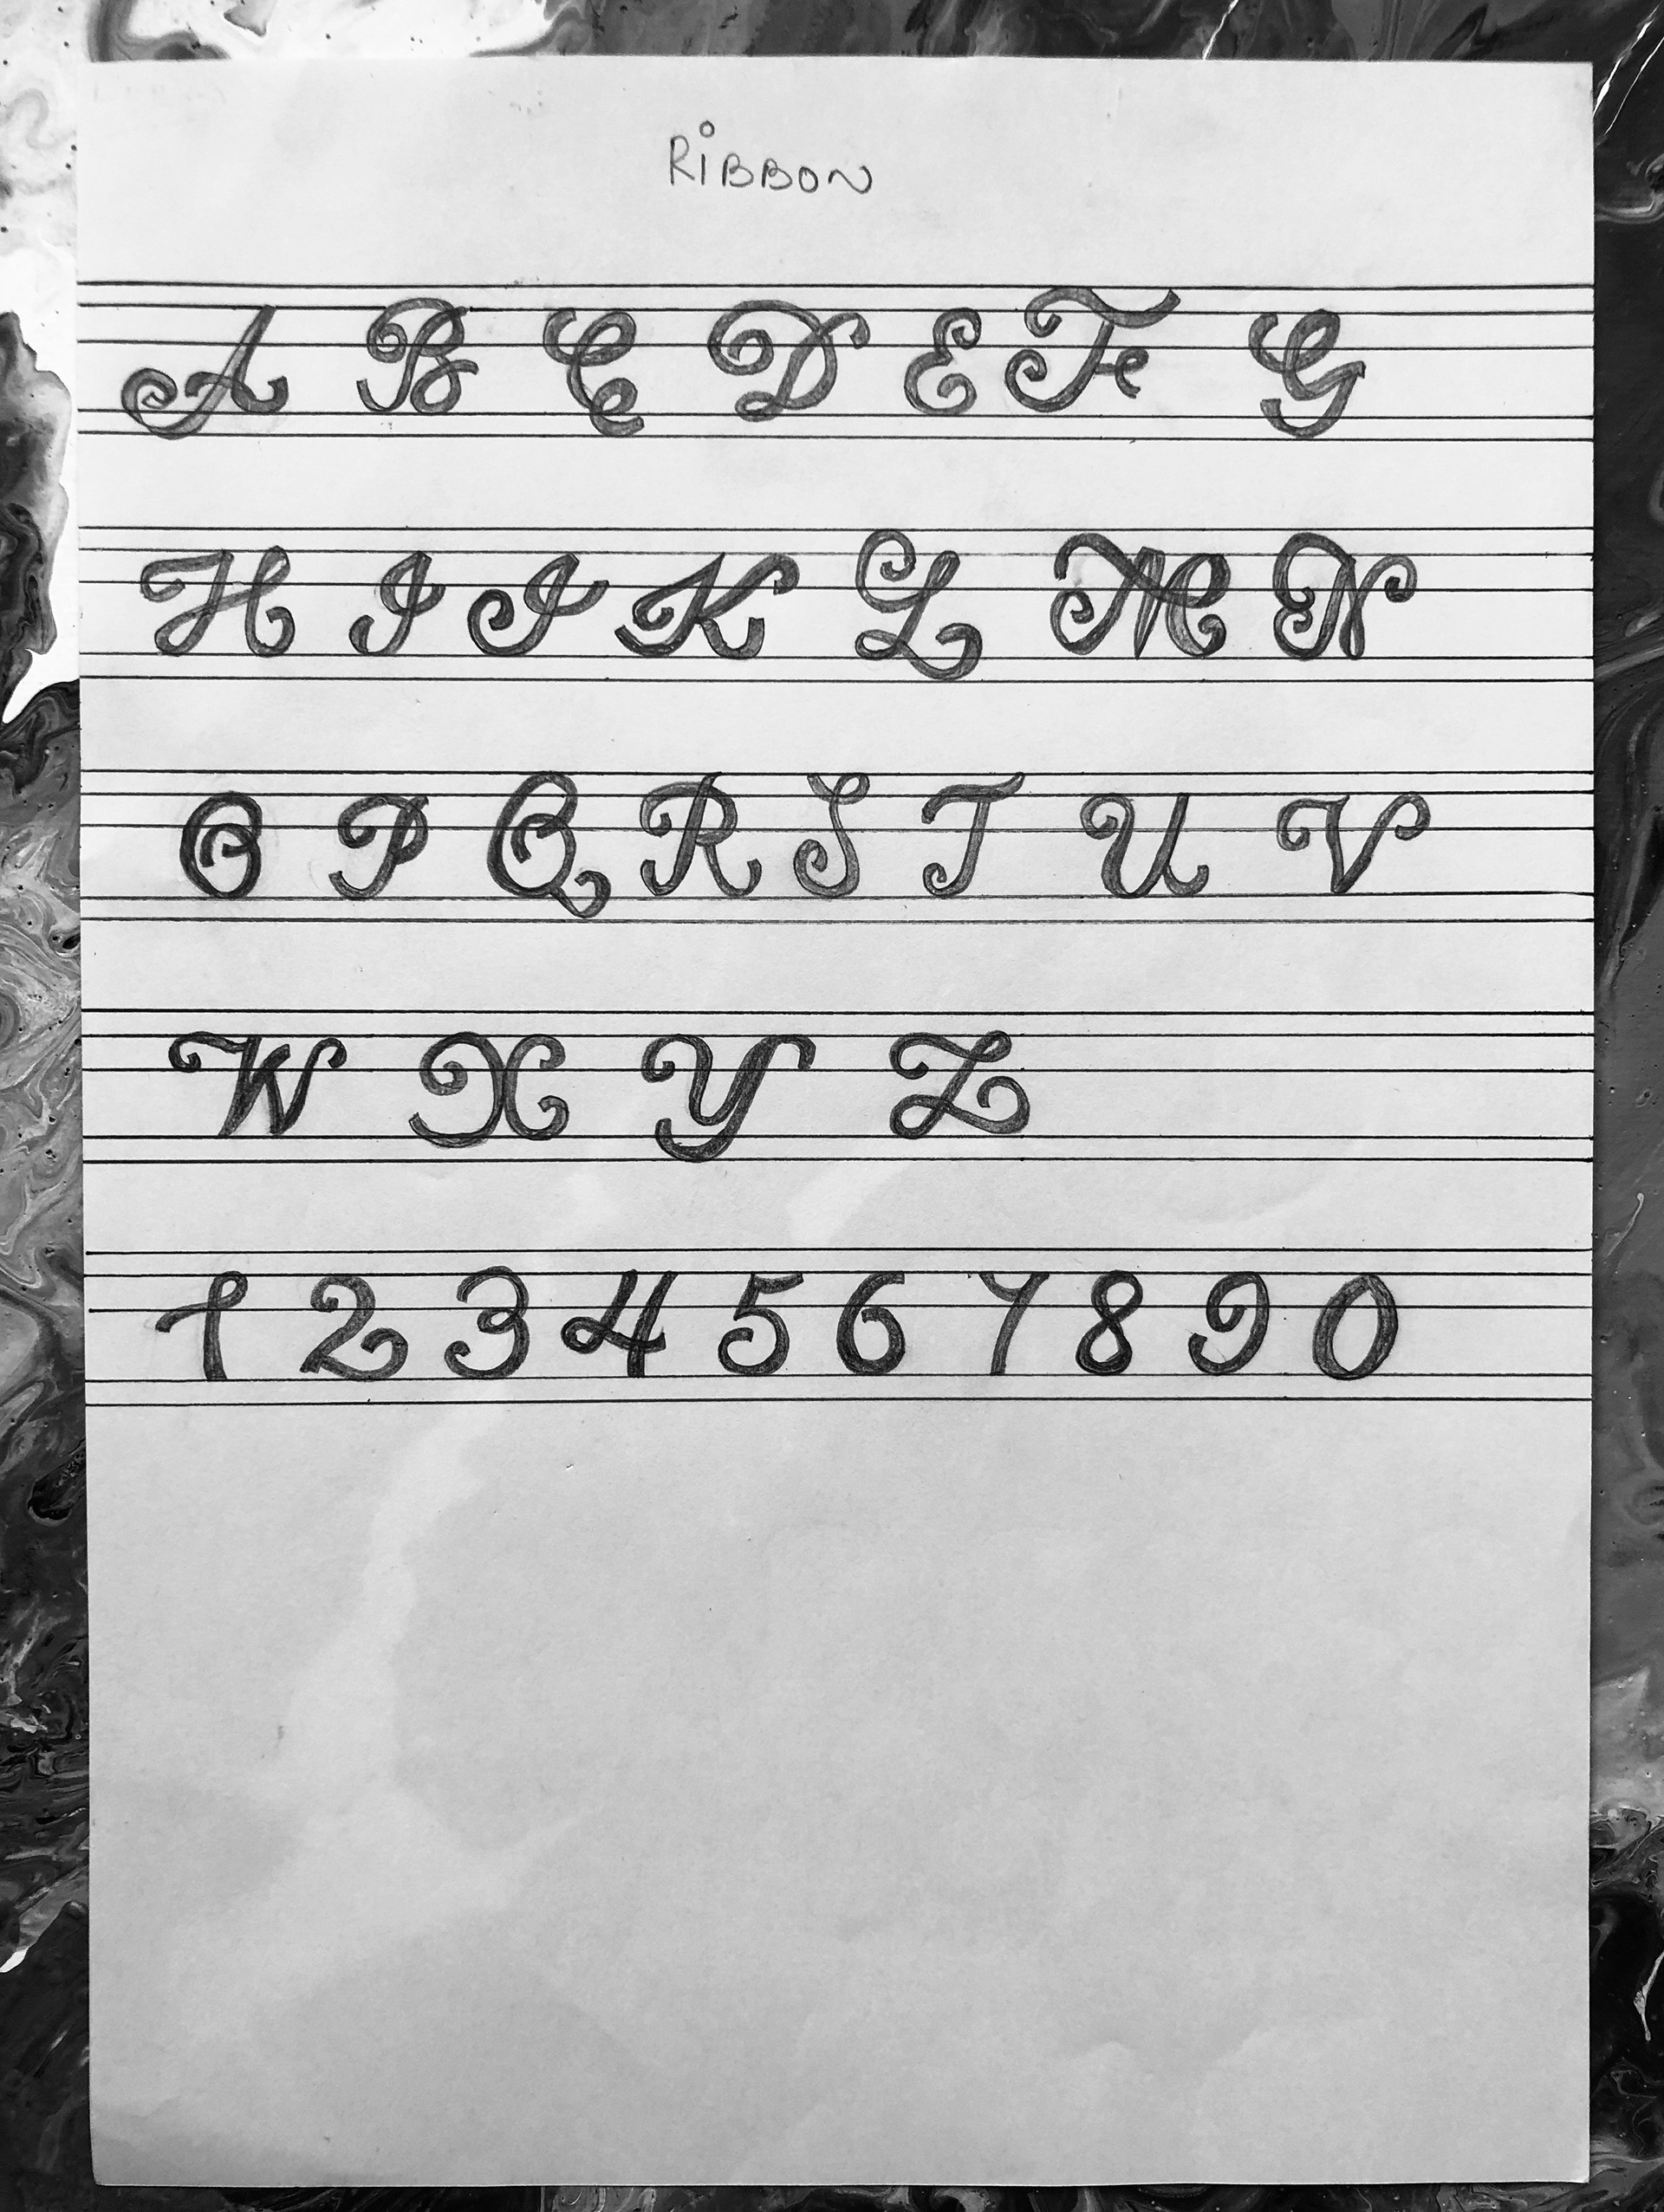 RiBBON
A B C D E F G
H I J K L M N
O P Q R S T U V
W X Y Z
1 2 3 4 5 6 7 8 9 0